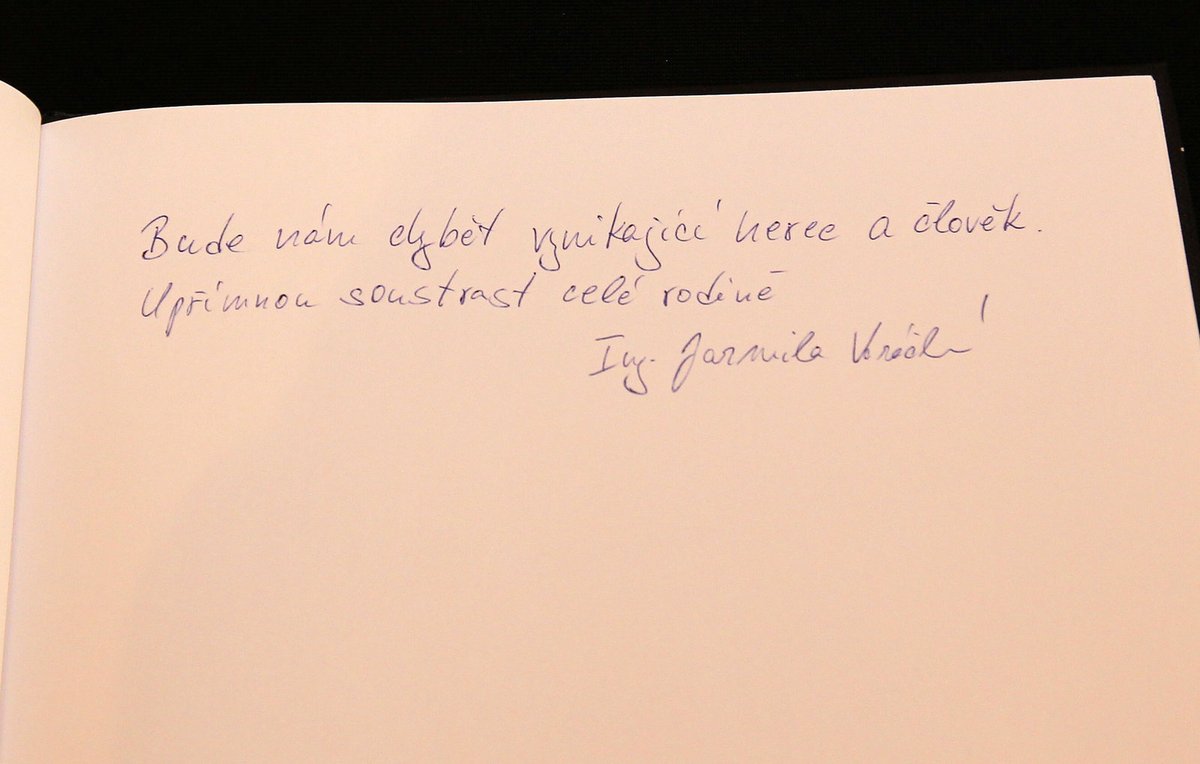 Bude nám chybět vynikající herec a člověk.
Upřímnou soustrast celé rodině
Ing. Jarmila